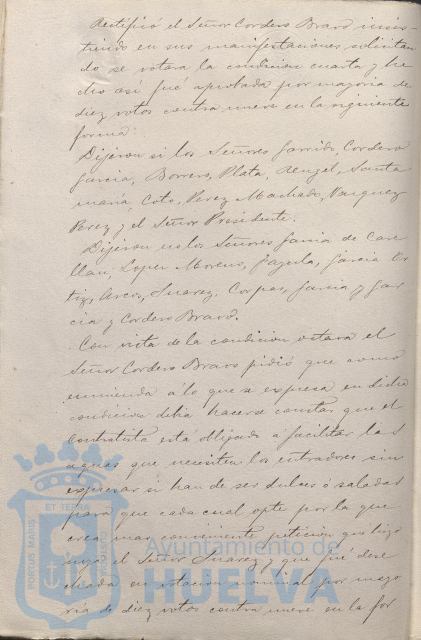 Rectificó el Señor Cordero Bravo insis-
tiendo en sus manifestaciones, solicitan
do se votara la condicion cuarta y he
cho así fué aprobada por mayoria de
diez votos contra nueve en la siguiente
forma:
Dijeron si los Señores Garrido, Cordero
Garcia, Borrero, Plata, Rengel, Santa
maria, Coto, Perez Machado, Vazquez
Perez y el Señor Presidente.
Dijeron no los Señores Garcia de Cas
llan, Lopez Moreno, Garcia Or
tiz, Arcos, Suarez, Corpas, Garcia y Gar
cia y Cordero Bravo.
Con vista de la condicion octava el
Señor Cordero Bravo pidió que como
enmienda á lo que se expresa en dicha
condicion debia hacerse constar que el
Contratista está obligado á facilitar las
aguas que necesiten los entradores sin
expresar si han de ser dulces ó saladas
para que cada cual opte por la que
crea mas conveniente peticion que hizo
suya el Señor Suarez y que fué dese
chada en votacion nominal por mayo
ría de diez votos contra nueve en la for
PORTUS MARIS
ET TERRAE
CUSTODIA
Ayuntamiento de
HUELVA